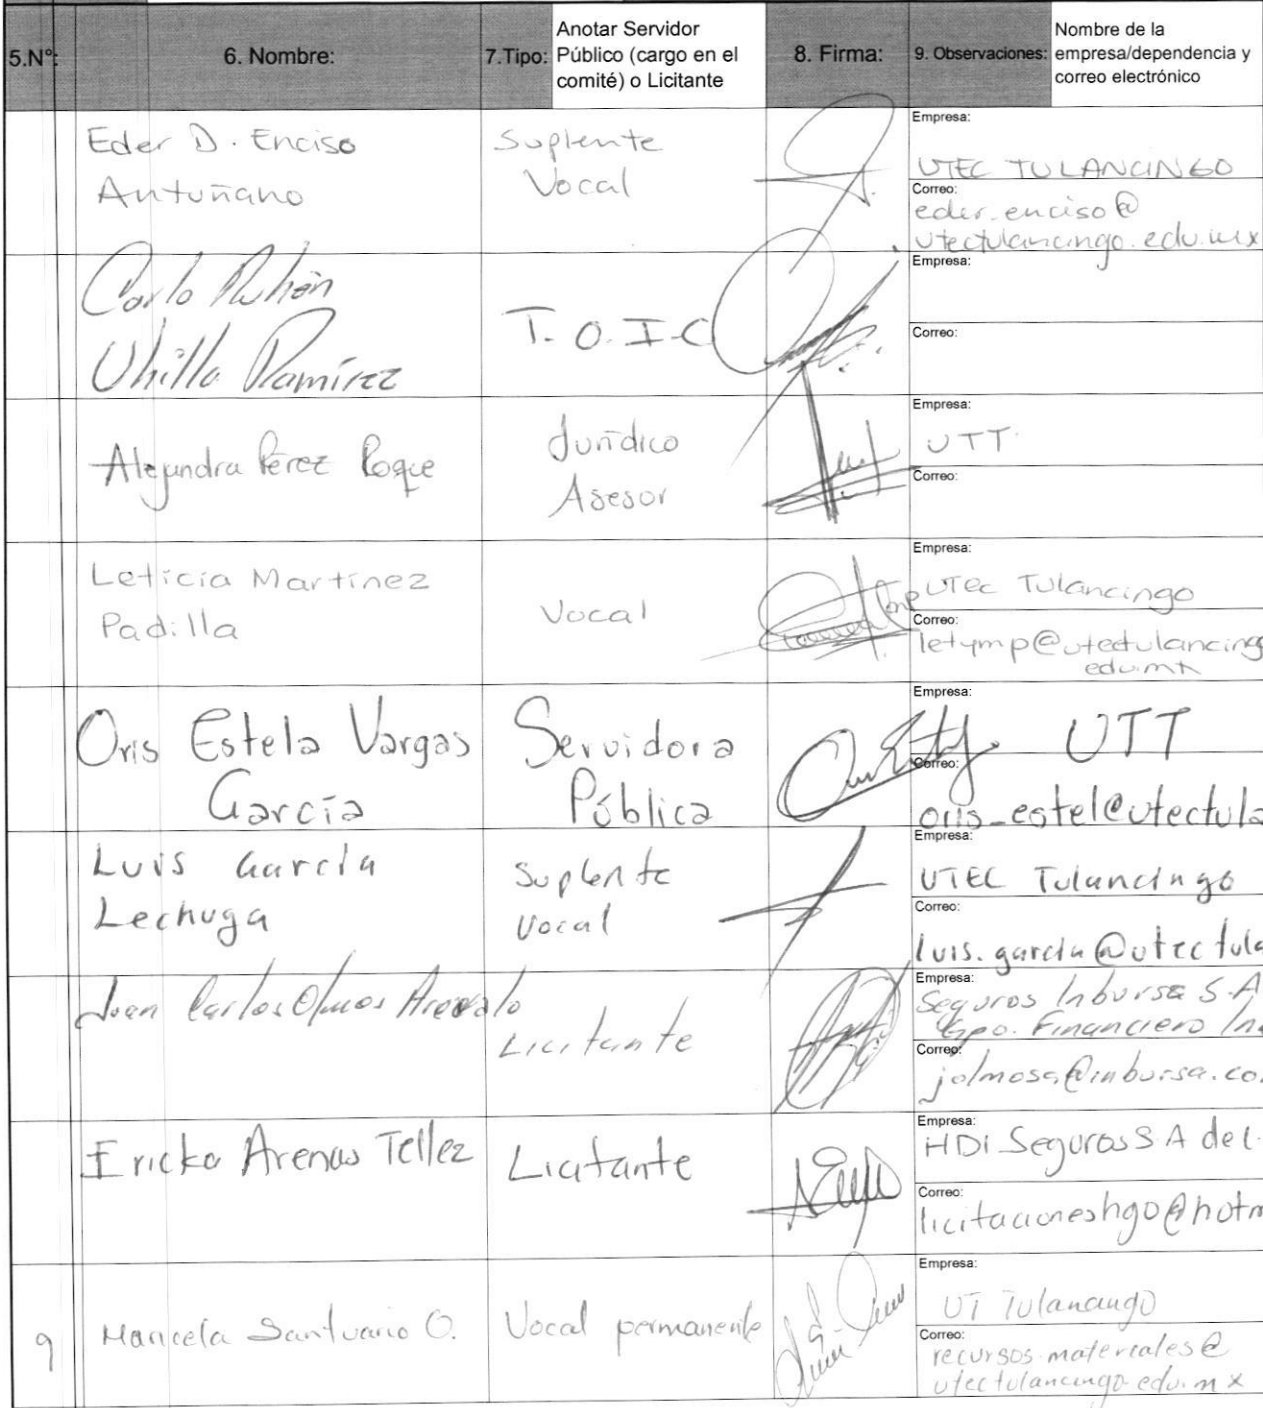 5.Nº:
6. Nombre:
7.Tipo:
Anotar Servidor
Público (cargo en el
comité) o Licitante
8. Firma:
9. Observaciones:
Nombre de la
empresa/dependencia y
correo electrónico
Eder D. Enciso
Antuñano
Suplente
Vocal
Empresa:
UTEC TULANCINGO
Correo:
eder.enciso@
utectulancingo.edu.mx
Carlo
Ramírez
T.O.I.C
Empresa:
Correo:
Alejandra Pérez Roque
Jurídico
Asesor
Empresa:
UTT
Correo:
Leticia Martínez
Padilla
Vocal
Empresa:
UTec Tulancingo
Correo:
letymp@utectulancingo
edu.mx
Oris Estela Vargas
García
Servidora
Pública
Empresa:
UTT
Correo:
oris_estel@utectula
Luis García
Lechuga
Suplente
Vocal
Empresa:
UTEC Tulancingo
Correo:
luis.garcia@utectula
Juan Carlos Olmos Arevalo
Licitante
Empresa:
Seguros Inbursa S.A
Gpo. Financiero In
Correo:
jolmosa@inbursa.co
Ericka Arenas Tellez
Licitante
Empresa:
HDI Seguros S.A de C.
Correo:
licitacioneshgo@hotm
9
Maricela Santuario O.
Vocal permanente
Empresa:
UT Tulancingo
Correo:
recursos.materiales@
utectulancingo.edu.mx